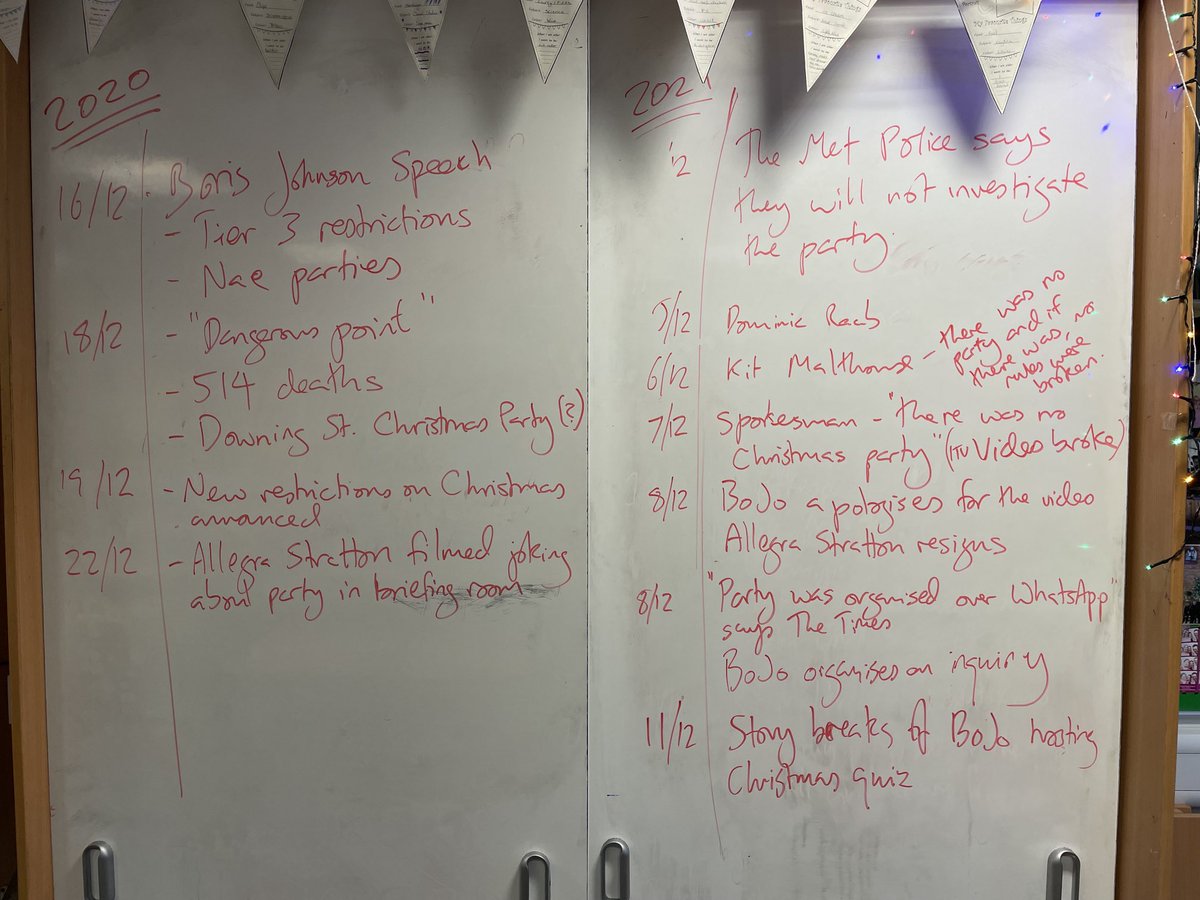 2020
16/12 Boris Johnson Speech
- Tier 3 restrictions
- Nae parties
18/12 - "Dangerous point"
- 514 deaths
- Downing St. Christmas Party (?)
19/12 - New restrictions on Christmas
announced
22/12 - Allegra Stratton filmed joking
about party in briefing room
2021
'2 The Met Police says
they will not investigate
the party.
5/12 Dominic Raab
6/12 Kit Malthouse - there was no
party and if
there was, no
rules were
broken.
7/12 Spokesman - "there was no
Christmas party" (ITV Video broke)
8/12 BoJo apologises for the video
Allegra Stratton resigns
8/12 "Party was organised over WhatsApp"
says The Times
BoJo organises an inquiry
11/12 Story breaks of BoJo hosting
Christmas quiz